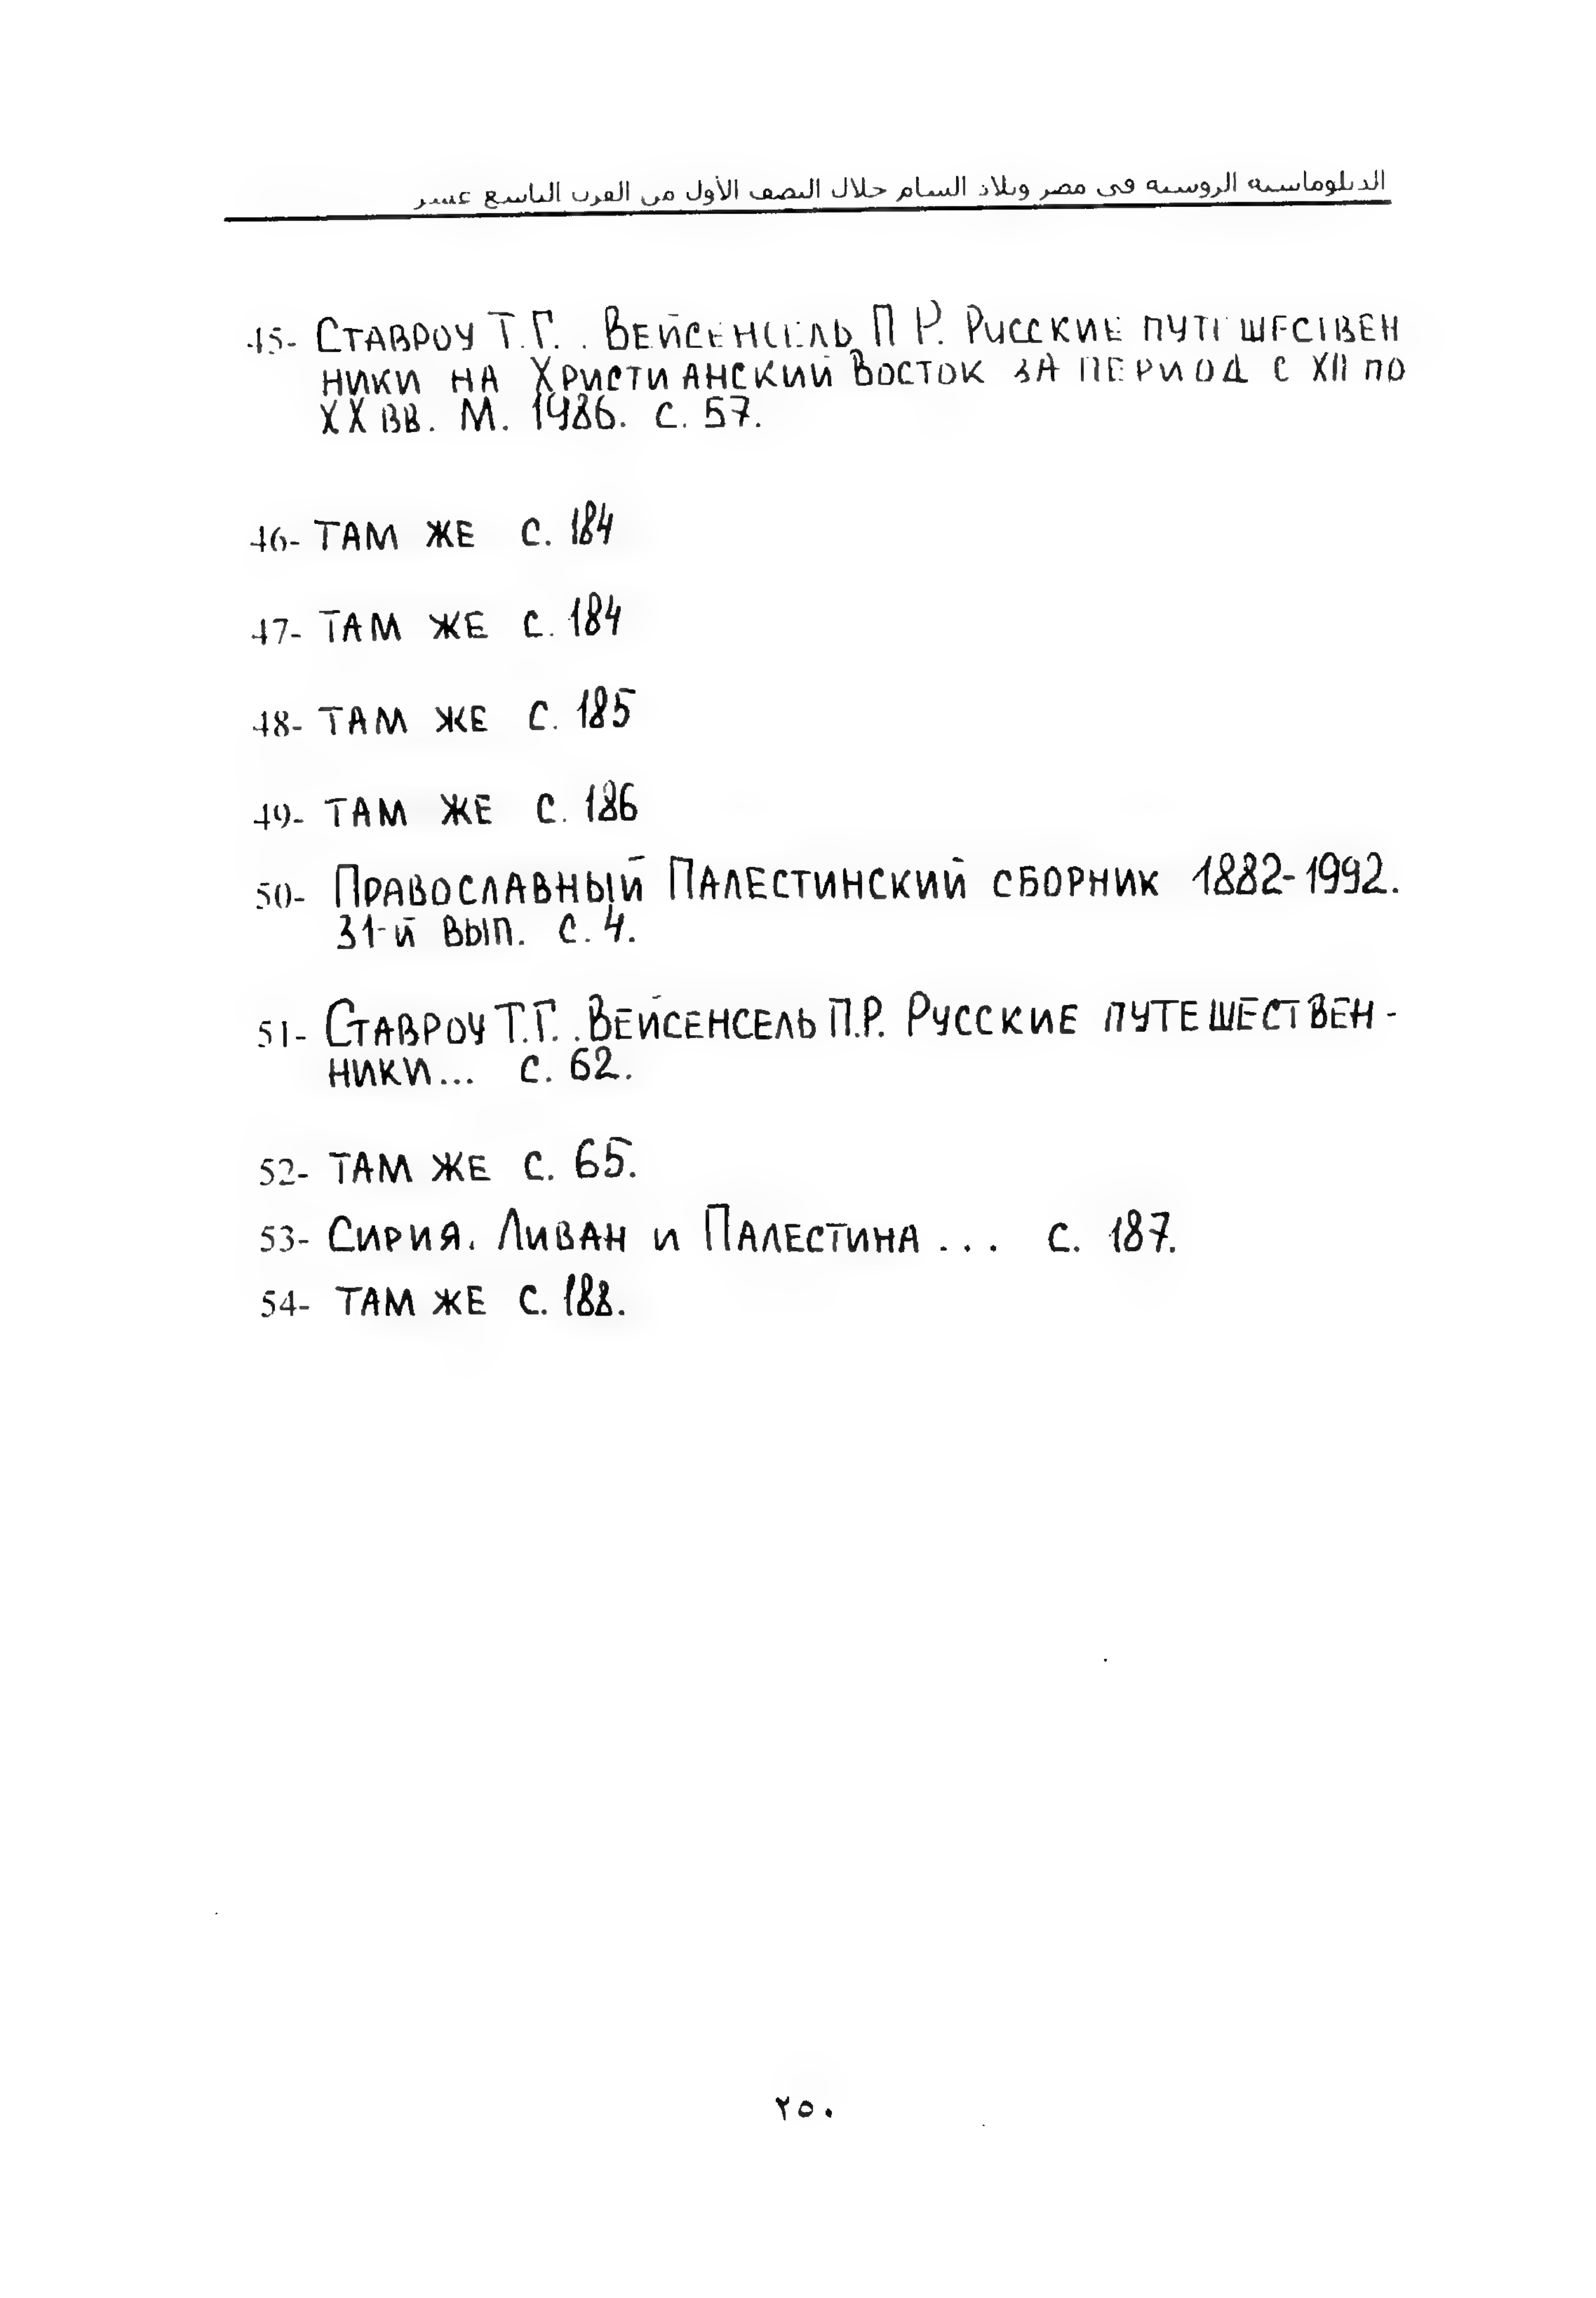 الدبلوماسية الروسية فى مصر وبلاد الشام خلال النصف الأول من القرن التاسع عشر
45- Ставроу Т.Г. . Вейсенсель П Р. Русские путешествен
ники на Христианский Восток за период с XII по
XX вв. М. 1986. с. 57.
46- там же с. 184
47- там же с. 184
48- там же с. 185
49- там же с. 186
50- Православный Палестинский сборник 1882-1992.
31-й вып. с. 4.
51- Ставроу Т.Г. . Вейсенсель П.Р. Русские путешествен-
ники... с. 62.
52- там же с. 65.
53- Сирия. Ливан и Палестина ... с. 187.
54- там же с. 188.
٢٥٠